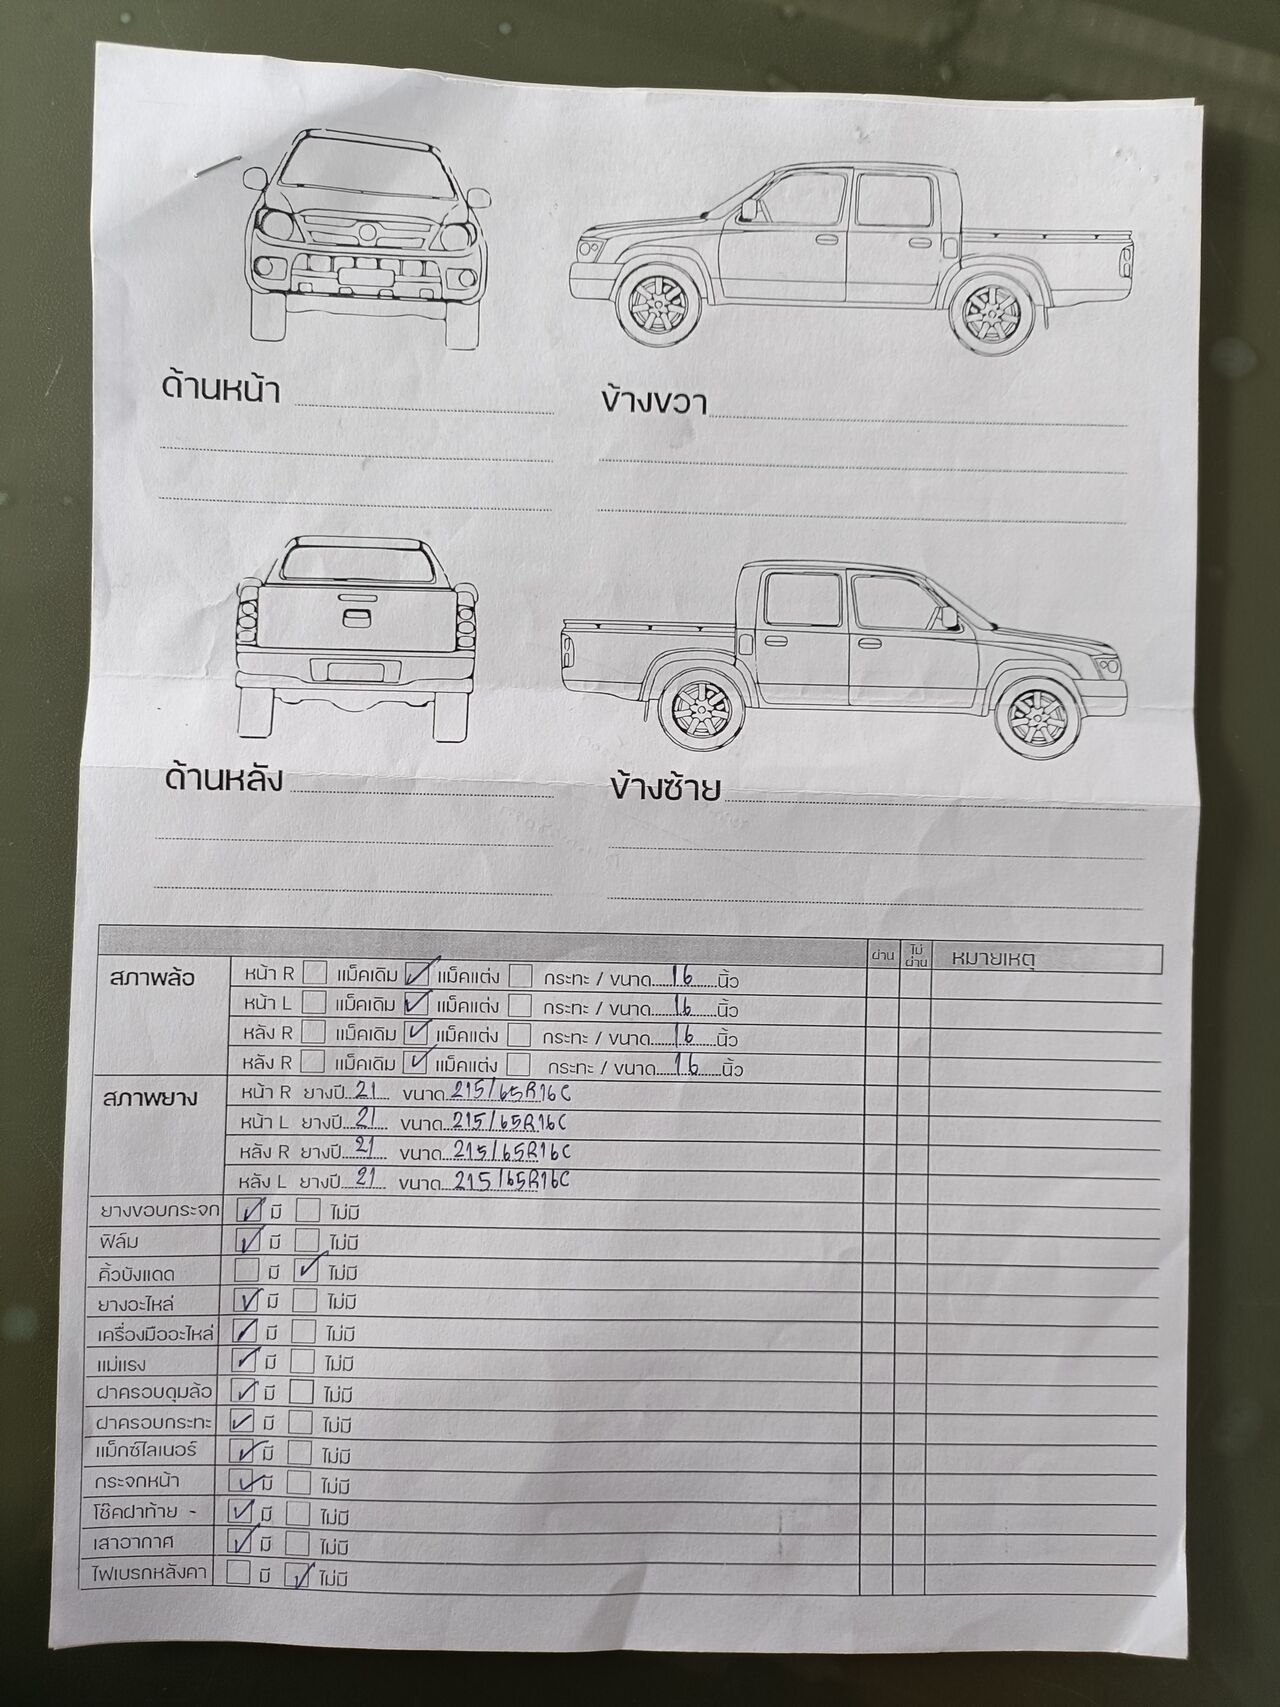 ด้านหน้า
ข้างขวา
ด้านหลัง
ข้างซ้าย
ผ่าน ไม่ผ่าน หมายเหตุ
สภาพล้อ หน้า R แม็คเดิม แม็คแต่ง กระทะ / ขนาด 16 นิ้ว
หน้า L แม็คเดิม แม็คแต่ง กระทะ / ขนาด 16 นิ้ว
หลัง R แม็คเดิม แม็คแต่ง กระทะ / ขนาด 16 นิ้ว
หลัง R แม็คเดิม แม็คแต่ง กระทะ / ขนาด 16 นิ้ว
สภาพยาง หน้า R ยางปี 21 ขนาด 215/65R16C
หน้า L ยางปี 21 ขนาด 215/65R16C
หลัง R ยางปี 21 ขนาด 215/65R16C
หลัง L ยางปี 21 ขนาด 215/65R16C
ยางขอบกระจก มี ไม่มี
ฟิล์ม มี ไม่มี
คิ้วบังแดด มี ไม่มี
ยางอะไหล่ มี ไม่มี
เครื่องมืออะไหล่ มี ไม่มี
แม่แรง มี ไม่มี
ฝาครอบดุมล้อ มี ไม่มี
ฝาครอบกระทะ มี ไม่มี
แม็กซ์ไลเนอร์ มี ไม่มี
กระจกหน้า มี ไม่มี
โช๊คฝาท้าย - มี ไม่มี
เสาอากาศ มี ไม่มี
ไฟเบรกหลังคา มี ไม่มี